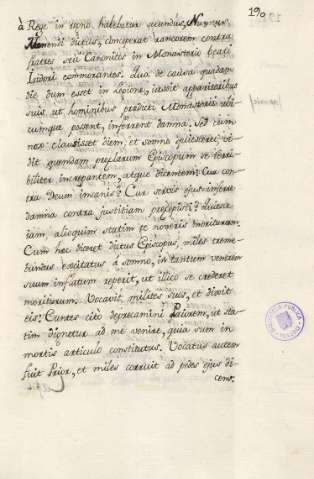 190
à Rege in regno habebatur secundus, Nunnus
Menendi dictus, conceperat rancorem contra
fratres seu Canonicos in Monasterio beati
Isidori commorantes. Qua de causa quadam
die dum esset in Legione, iussit apparitoribus
suis ut hominibus prædicti Monasterii ubi
cumque possent, inferrent damna. Sed cum
nox clausisset diem, et somno quiesceret, vi
dit quemdam præclarum Episcopum se terri
biliter increpantem, atque dicentem: Cur con
tra Deum insanis? Cur servis ejus inferre
damna contra justitiam præcepisti?
iam, alioquin statim te noveris moriturum.
Cum hæc diceret dictus Episcopus, miles treme
bundus excitatus à somno, in tantum ventrem
suum inflatum reperit, ut illico se crederet
moriturum. Vocavit milites suos, et dixit
eis: Euntes cito deprecamini Priorem, ut sta
tim dignetur ad me venire, quia sum in
mortis articulo constitutus. Vocatus autem
fuit Prior, et miles corruit ad pedes ejus di
cens.